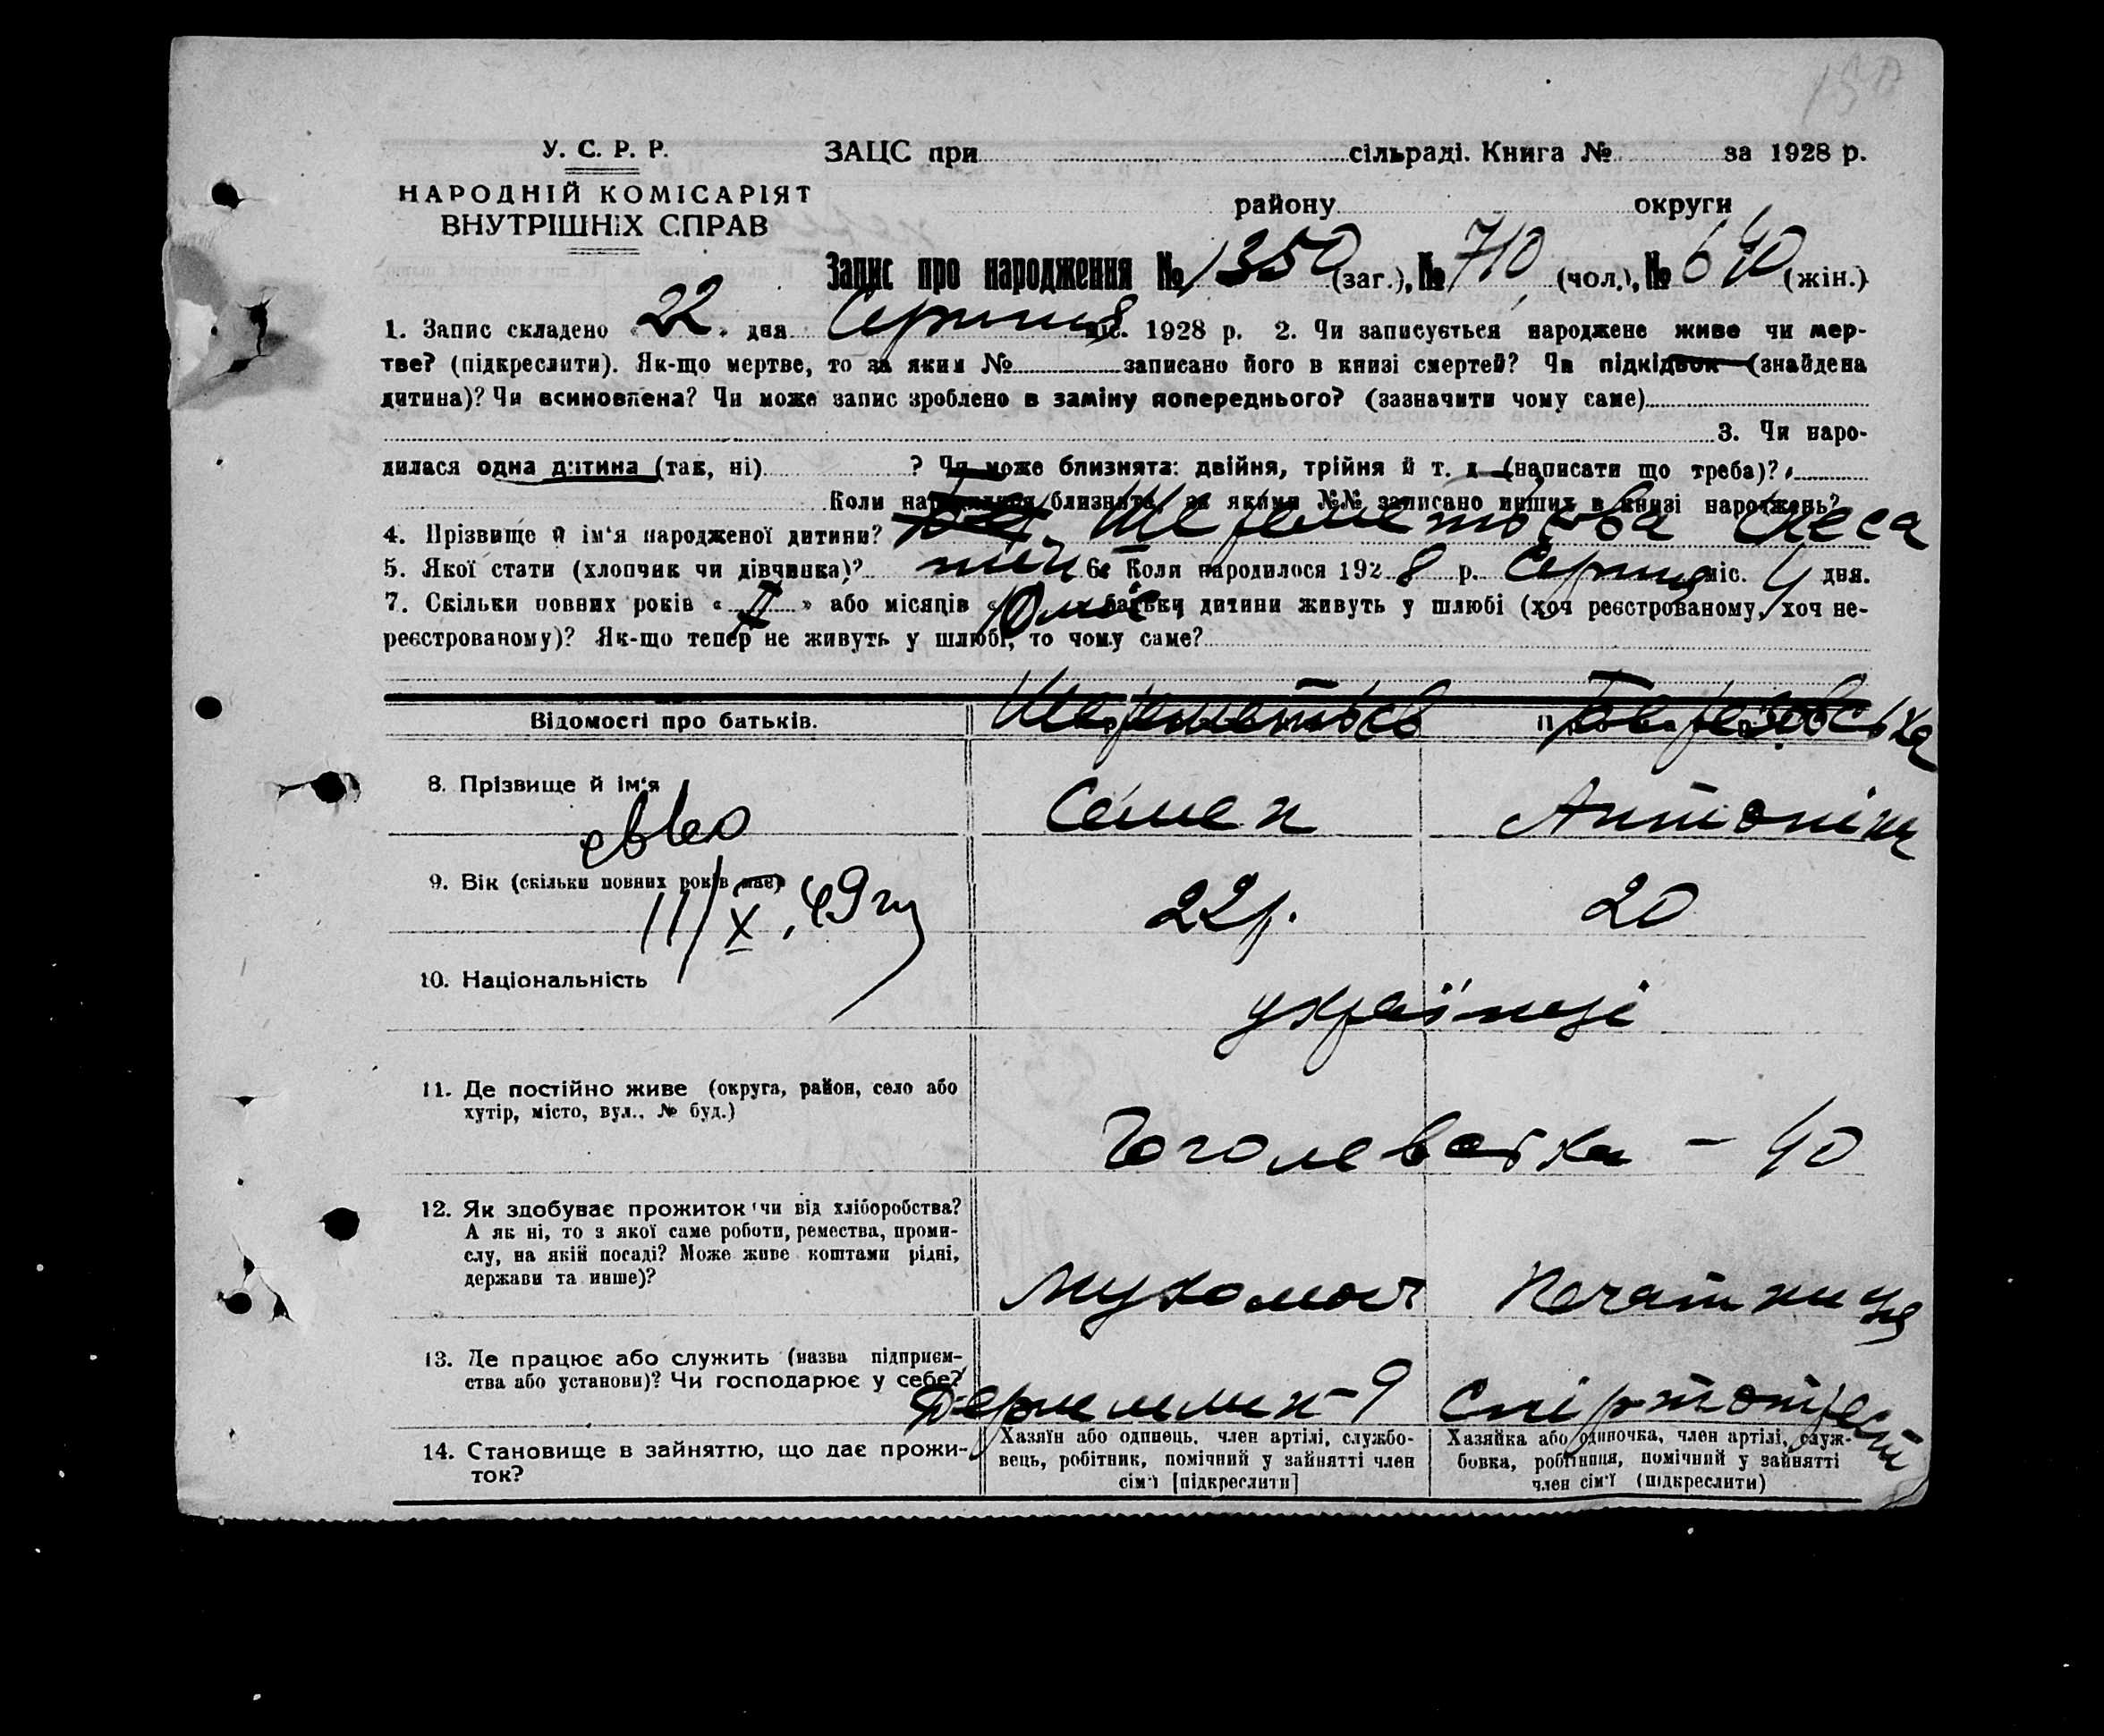 150
У. С. Р. Р.
НАРОДНІЙ КОМІСАРІЯТ
ВНУТРІШНІХ СПРАВ
ЗАЦС при сільраді. Книга № за 1928 р.
району округи
Запис про народження № 1350 (заг.), № 710 (чол.), № 640 (жін.)
1. Запис складено « 22 » дня Серпня міс. 1928 р. 2. Чи записується народжене живе чи мер-
тве? (підкреслити). Як-що мертве, то за яким № записано його в книзі смертей? Чи підкідвок (знайдена
дитина)? Чи всиновлена? Чи може запис зроблено в заміну попереднього? (зазначити чому саме)
3. Чи наро-
дилася одна дитина (так, ні) ? Чи може близнята: двійня, трійня й т. д. (написати що треба)?
Коли народилися близнята, за якими №№ записано инших в книзі народжень?
4. Прізвище й ім'я народженої дитини? Шереметьєва
5. Якої стати (хлопчик чи дівчинка)? 6. Коли народилося 1928 р. Серпня міс. 4 дня.
7. Скільки повних років « » або місяців « 10 міс. батьки дитини живуть у шлюбі (хоч реєстрованому, хоч не-
реєстрованому)? Як-що тепер не живуть у шлюбі, то чому саме?
Відомості про батьків. Шереметьєв
8. Прізвище й ім'я Семен Антоніна
9. Вік (скільки повних років має) 22 р. 20
11/X. 49 г
10. Національність українці
11. Де постійно живе (округа, район, село або
хутір, місто, вул., № буд.)
Гоголевська – 40
12. Як здобуває прожиток чи від хліборобства?
А як ні, то з якої саме роботи, ремества, проми-
слу, на якій посаді? Може живе коштами рідні,
держави та инше)?
мукомол Печатниця
13. Де працює або служить (назва підприєм-
ства або установи)? Чи господарює у себе?
Держмлин – 9 Спіртотрест
14. Становище в зайняттю, що дає прожи-
ток?
Хазяїн або одинець, член артілі, службо-
вець, робітник, помічний у зайнятті член
сім'ї [підкреслити]
Хазяйка або одиночка, член артілі, служ-
бовка, робітниця, помічний у зайнятті
член сім'ї (підкреслити)